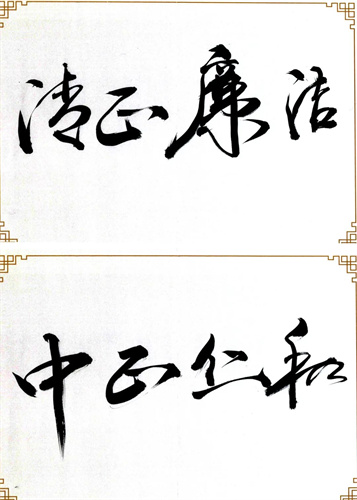 清正廉洁
中正仁和